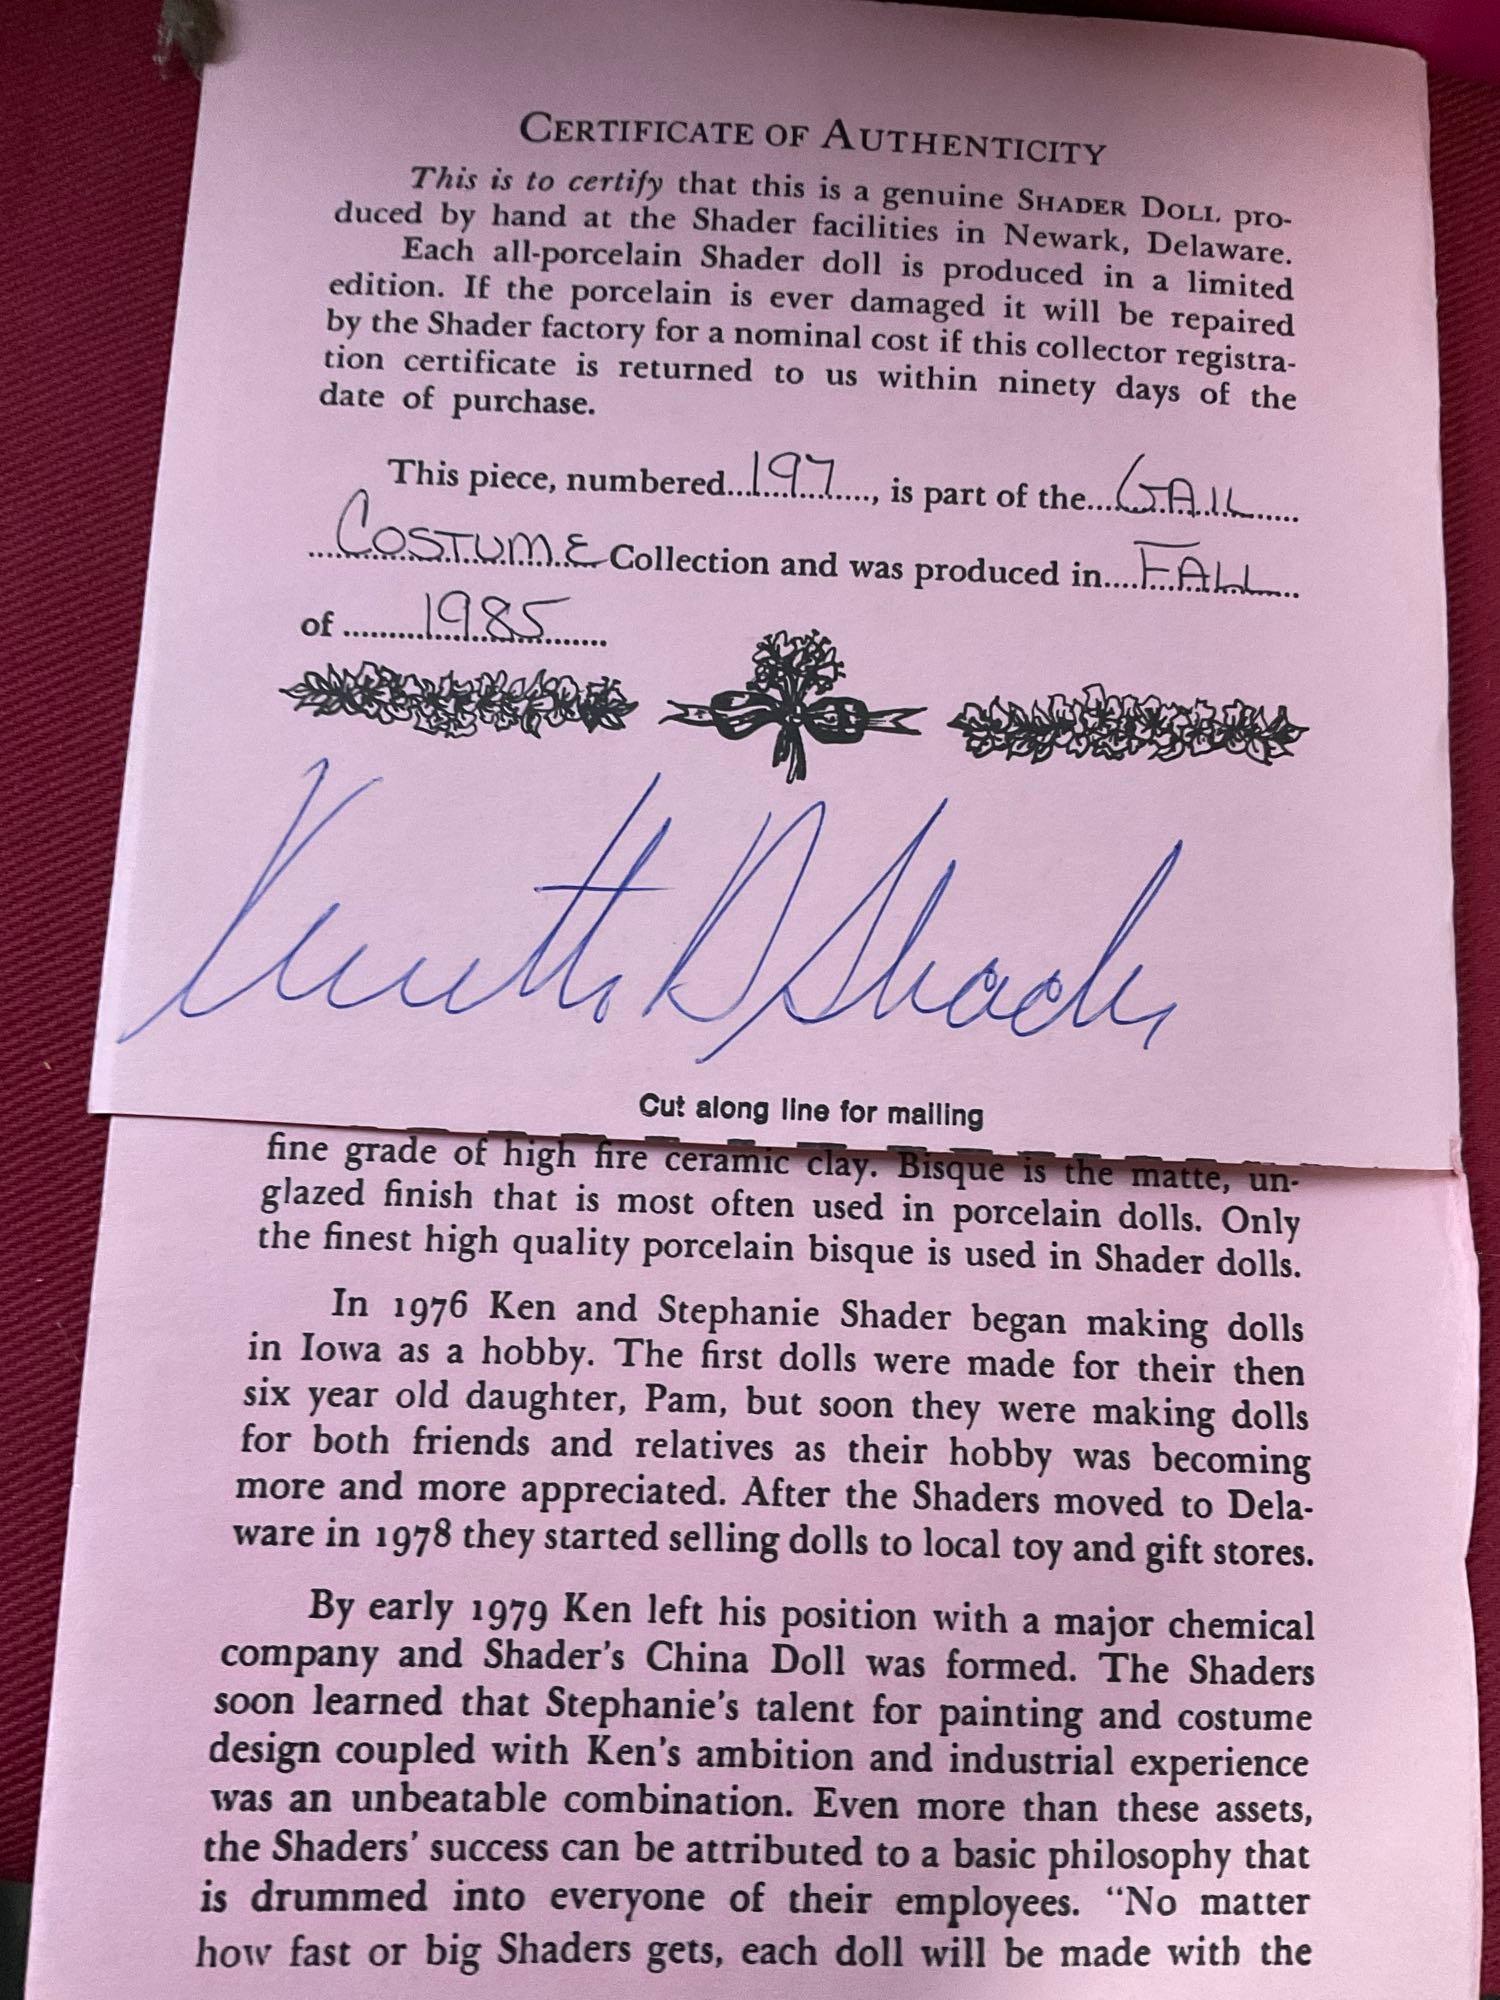 CERTIFICATE OF AUTHENTICITY
This is to certify that this is a genuine SHADER DOLL, pro-
duced by hand at the Shader facilities in Newark, Delaware.
Each all-porcelain Shader doll is produced in a limited
edition. If the porcelain is ever damaged it will be repaired
by the Shader factory for a nominal cost if this collector registra-
tion certificate is returned to us within ninety days of the
date of purchase.
This piece, numbered...197..., is part of the...GAIL...
...COSTUME Collection and was produced in...FALL...
of ...1985...
Kenneth D Shader
Cut along line for mailing
fine grade of high fire ceramic clay. Bisque is the matte, un-
glazed finish that is most often used in porcelain dolls. Only
the finest high quality porcelain bisque is used in Shader dolls.
In 1976 Ken and Stephanie Shader began making dolls
in Iowa as a hobby. The first dolls were made for their then
six year old daughter, Pam, but soon they were making dolls
for both friends and relatives as their hobby was becoming
more and more appreciated. After the Shaders moved to Dela-
ware in 1978 they started selling dolls to local toy and gift stores.
By early 1979 Ken left his position with a major chemical
company and Shader's China Doll was formed. The Shaders
soon learned that Stephanie's talent for painting and costume
design coupled with Ken's ambition and industrial experience
was an unbeatable combination. Even more than these assets,
the Shaders' success can be attributed to a basic philosophy that
is drummed into everyone of their employees. "No matter
how fast or big Shaders gets, each doll will be made with the